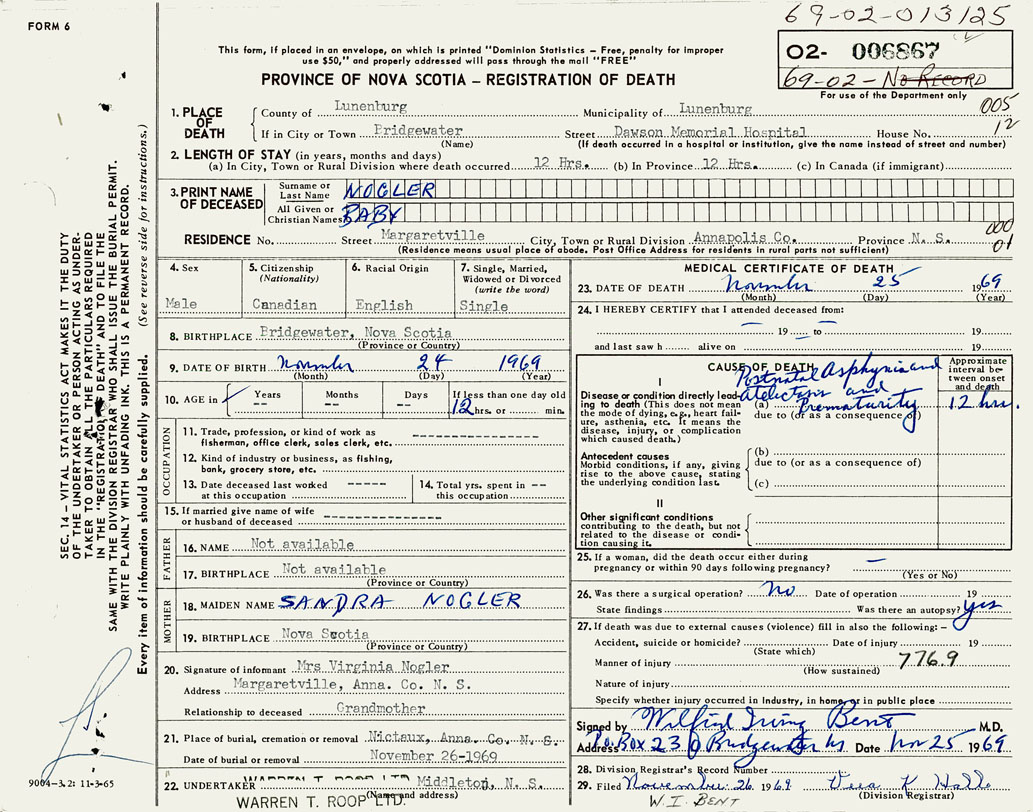 69-02-013125
FORM 6
This form, if placed in an envelope, on which is printed "Dominion Statistics – Free, penalty for improper
use $50," and properly addressed will pass through the mail "FREE"
02- 006867
69-02- No Record
PROVINCE OF NOVA SCOTIA – REGISTRATION OF DEATH
For use of the Department only
005
12
1. PLACE OF DEATH
County of Lunenburg Municipality of Lunenburg
If in City or Town Bridgewater Street Dawson Memorial Hospital House No.
(Name) (If death occurred in a hospital or institution, give the name instead of street and number)
2. LENGTH OF STAY (in years, months and days)
(a) In City, Town or Rural Division where death occurred 12 Hrs. (b) In Province 12 Hrs. (c) In Canada (if immigrant)
3. PRINT NAME OF DECEASED
Surname or Last Name NOGLER
All Given or Christian Names BABY
000
01
RESIDENCE No. Street Margaretville City, Town or Rural Division Annapolis Co. Province N. S.
(Residence means usual place of abode. Post Office Address for residents in rural parts not sufficient)
4. Sex
Male
5. Citizenship
(Nationality)
Canadian
6. Racial Origin
English
7. Single, Married,
Widowed or Divorced
(write the word)
Single
8. BIRTHPLACE Bridgewater, Nova Scotia
(Province or Country)
9. DATE OF BIRTH November 24 1969
(Month) (Day) (Year)
10. AGE in Years Months Days If less than one day old
-- -- -- 12 hrs. or min.
OCCUPATION
11. Trade, profession, or kind of work as
fisherman, office clerk, sales clerk, etc. ----------------
12. Kind of industry or business, as fishing,
bank, grocery store, etc. ----------------
13. Date deceased last worked
at this occupation -----
14. Total yrs. spent in
this occupation --
15. If married give name of wife
or husband of deceased ----------------
FATHER
16. NAME Not available
17. BIRTHPLACE Not available
(Province or Country)
MOTHER
18. MAIDEN NAME SANDRA NOGLER
19. BIRTHPLACE Nova Scotia
(Province or Country)
20. Signature of informant Mrs Virginia Nogler
Address Margaretville, Anna. Co. N. S.
Relationship to deceased Grandmother
21. Place of burial, cremation or removal Nictaux, Anna. Co. N. S.
Date of burial or removal November 26-1969
22. UNDERTAKER WARREN T. ROOP LTD. Middleton, N. S.
(Name and address)
WARREN T. ROOP LTD.
MEDICAL CERTIFICATE OF DEATH
23. DATE OF DEATH November 25 1969
(Month) (Day) (Year)
24. I HEREBY CERTIFY that I attended deceased from:
19 to 19
and last saw h alive on 19
CAUSE OF DEATH
Approximate interval between onset and death
I
Disease or condition directly leading to death (This does not mean the mode of dying, e.g., heart failure, asthenia, etc. It means the disease, injury, or complication which caused death.)
(a) Postnatal Asphyxia and
atelectasis and
Prematurity 12 hrs.
due to (or as a consequence of)
Antecedent causes
Morbid conditions, if any, giving rise to the above cause, stating the underlying condition last.
(b)
due to (or as a consequence of)
(c)
II
Other significant conditions
contributing to the death, but not related to the disease or condition causing it.
25. If a woman, did the death occur either during
pregnancy or within 90 days following pregnancy? —
(Yes or No)
26. Was there a surgical operation? no Date of operation 19
State findings Was there an autopsy? yes
27. If death was due to external causes (violence) fill in also the following: –
Accident, suicide or homicide? Date of injury 19
(State which)
Manner of injury 776.9
(How sustained)
Nature of injury
Specify whether injury occurred in Industry, in home, or in public place
Signed by Wilfrid Irving Bent M.D.
Address P.O. Box 230 Bridgewater NS Date Nov 25 1969
28. Division Registrar's Record Number
29. Filed November 26 1969 Vera K
(Division Registrar)
W. I. BENT
SEC. 14 – VITAL STATISTICS ACT MAKES IT THE DUTY
OF THE UNDERTAKER OR PERSON ACTING AS UNDER-
TAKER TO OBTAIN ALL THE PARTICULARS REQUIRED
IN THE "REGISTRATION OF DEATH" AND TO FILE THE
SAME WITH THE DIVISION REGISTRAR WHO SHALL ISSUE THE BURIAL PERMIT.
WRITE PLAINLY WITH UNFADING INK. THIS IS A PERMANENT RECORD.
Every item of information should be carefully supplied. (See reverse side for instructions.)
9004-3.2: 11-3-65